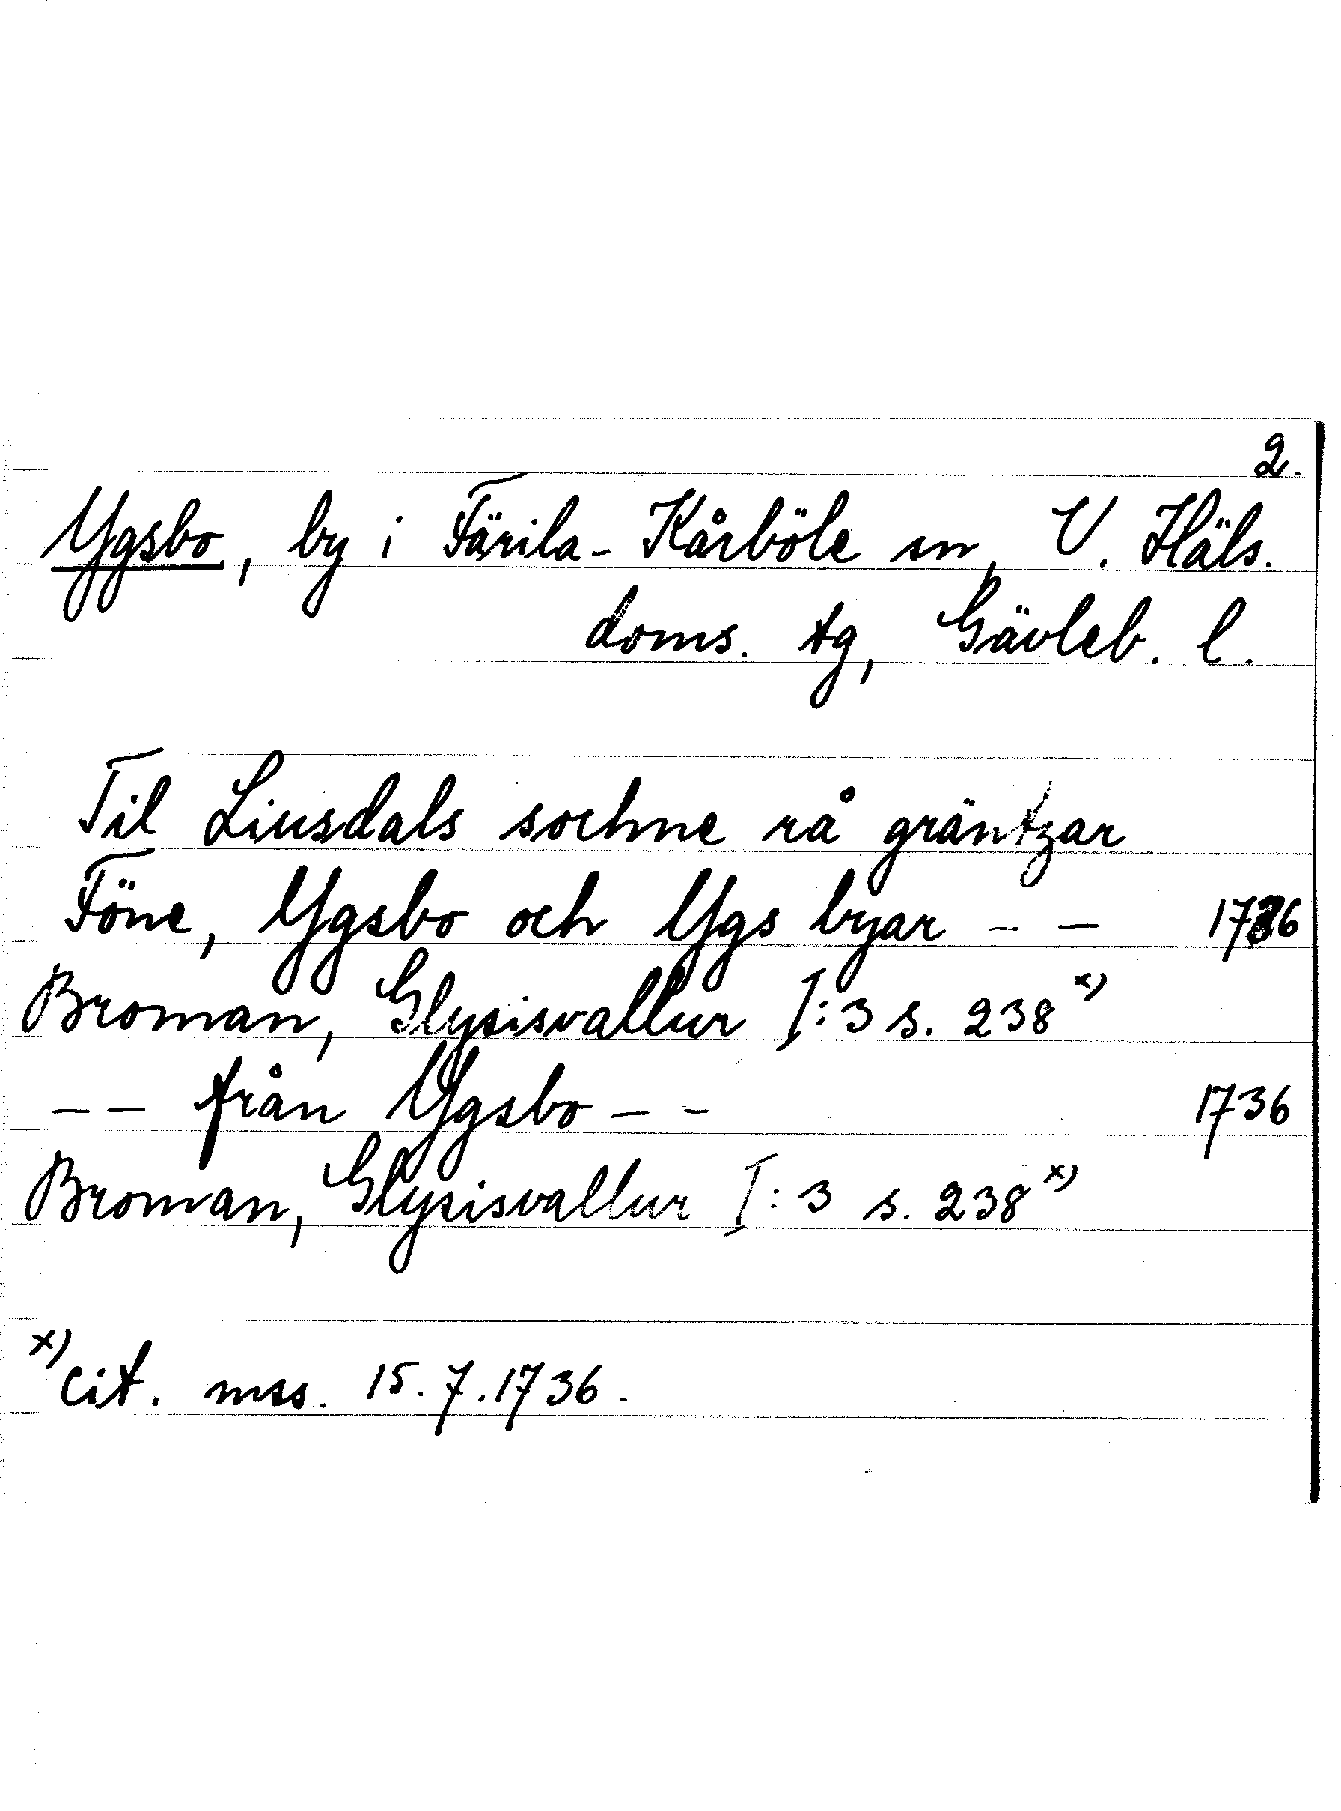 2.
Ygsbo, by i Färila-Kårböle sn, V. Häls.
doms. tg, Gävleb. l.
Til Liusdals sochne rå gräntzar
Föne, Ygsbo och Ygs byar - - 1736
Broman, Glysisvallur I:3 s. 238 x)
-- från Ygsbo -- 1736
Broman, Glysisvallur I:3 s. 238 x)
x) cit. mss. 15.7.1736.